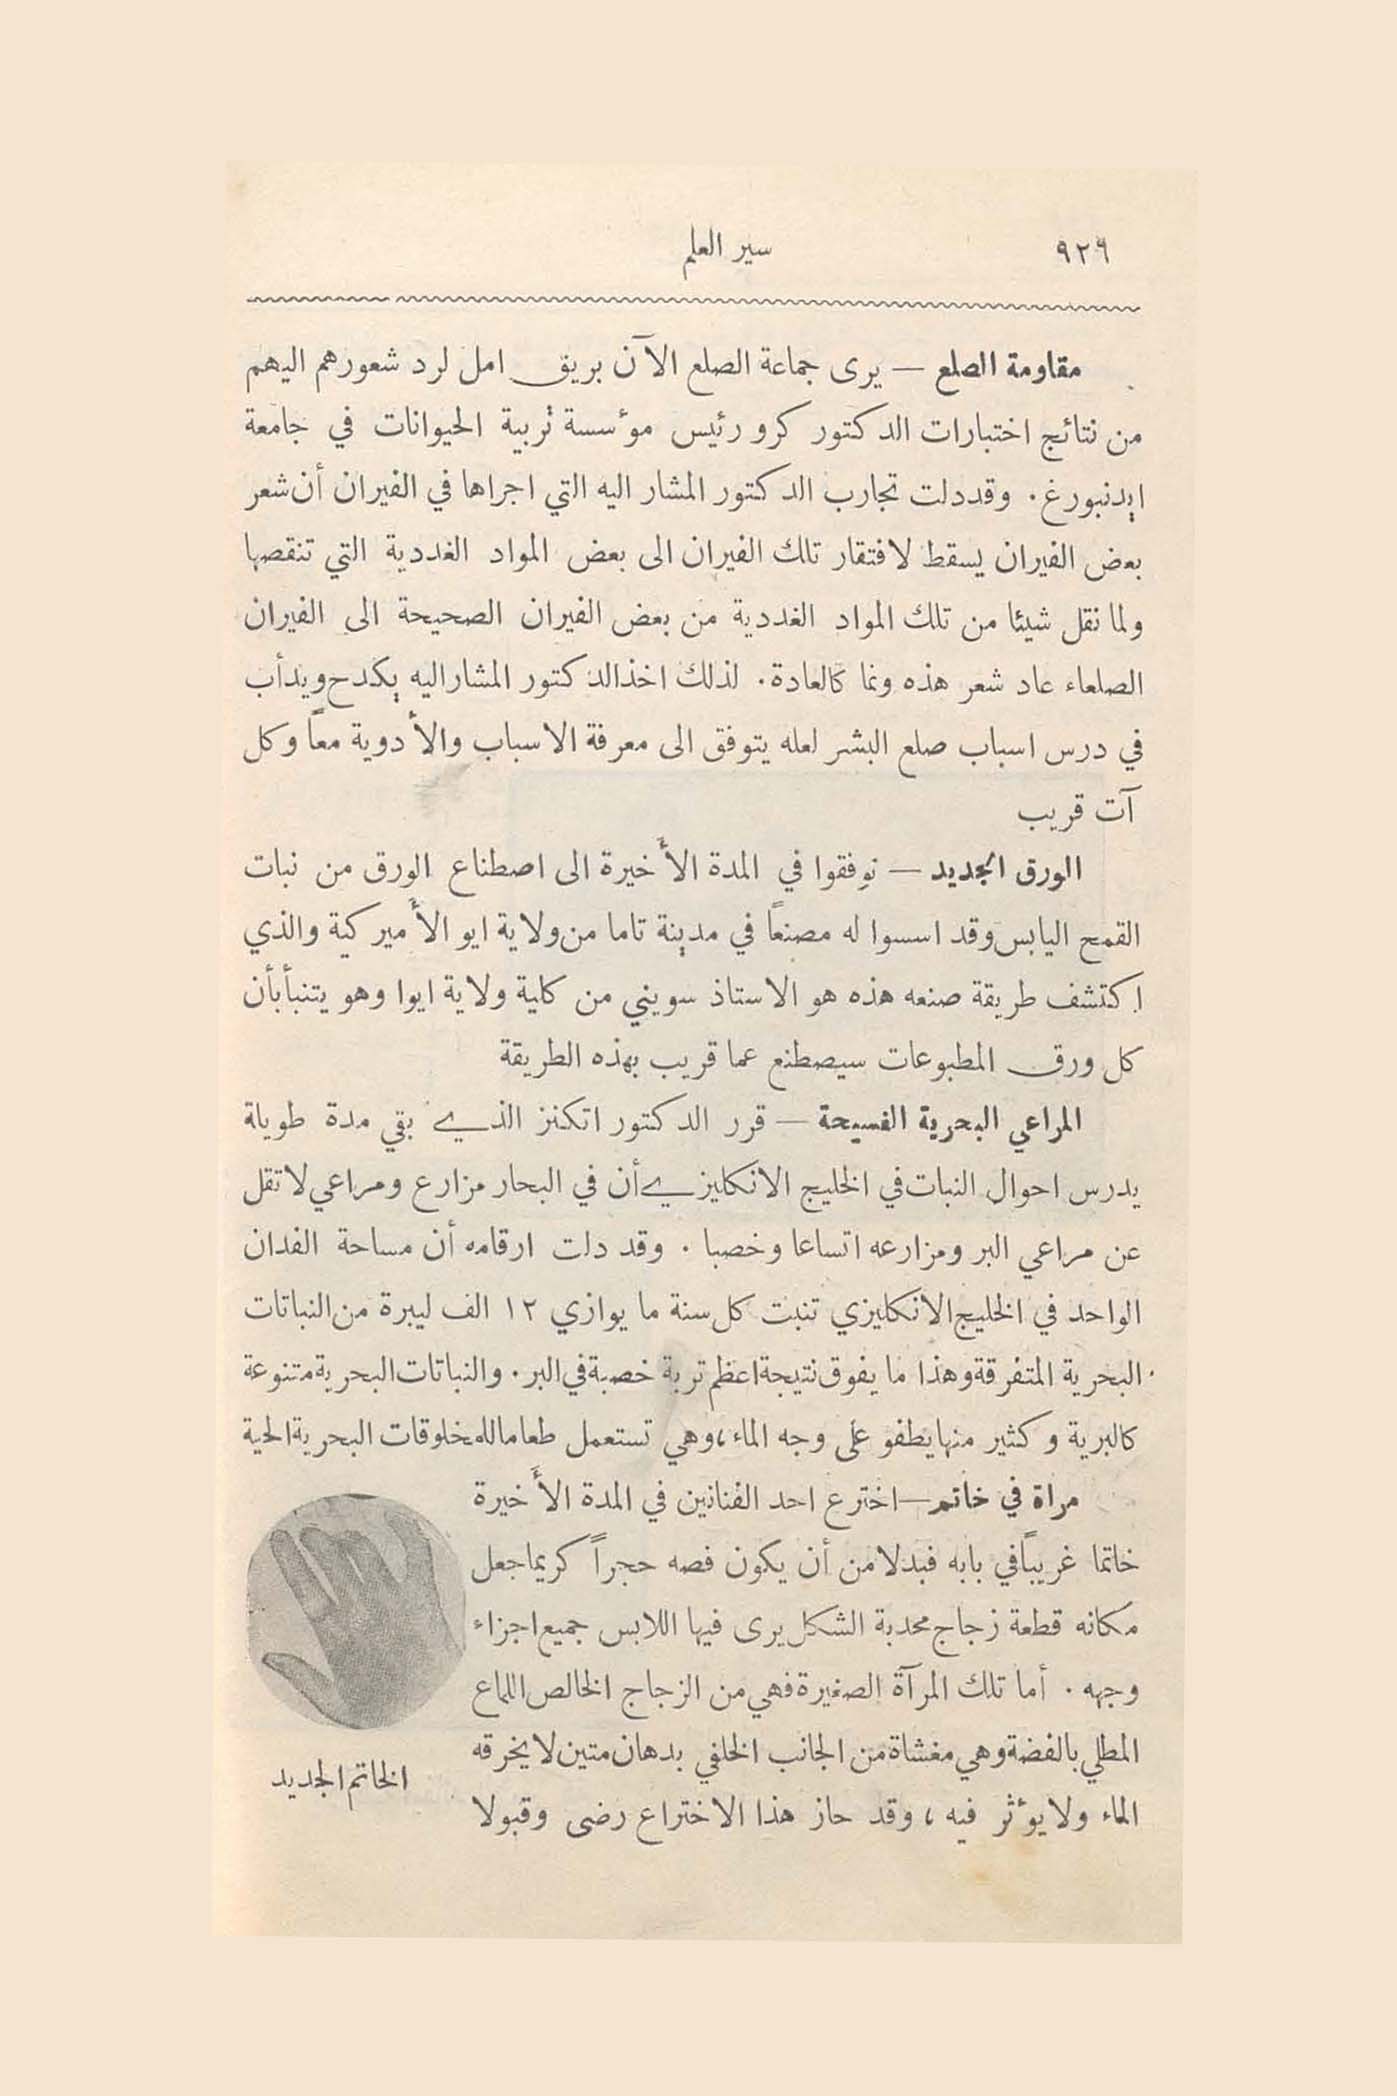 ٩٢٦
سير العلم
مقاومة الصلع — يرى جماعة الصلع الآن بريق امل لرد شعورهم اليهم
من نتائج اختبارات الدكتور كرو رئيس مؤسسة تربية الحيوانات في جامعة
ايدنبورغ . وقد دلت تجارب الدكتور المشار اليه التي اجراها في الفيران أن شعر
بعض الفيران يسقط لافتقار تلك الفيران الى بعض المواد الغددية التي تنقصها
ولما نقل شيئا من تلك المواد الغددية من بعض الفيران الصحيحة الى الفيران
الصلعاء عاد شعر هذه ونما كالعادة . لذلك اخذ الدكتور المشار اليه يكدح ويدأب
في درس اسباب صلع البشر لعله يتوفق الى معرفة الاسباب والأدوية معاً وكل
آت قريب
الورق الجديد — توفقوا في المدة الأخيرة الى اصطناع الورق من نبات
القمح اليابس وقد اسسوا له مصنعاً في مدينة تاما من ولاية ايو الأميركية والذي
اكتشف طريقة صنعه هذه هو الاستاذ سويني من كلية ولاية ايوا وهو يتنبأ بأن
كل ورق المطبوعات سيصطنع عما قريب بهذه الطريقة
المراعي البحرية الفسيحة — قرر الدكتور اتكنز الذي بقي مدة طويلة
يدرس احوال النبات في الخليج الانكليزي أن في البحار مزارع ومراعي لا تقل
عن مراعي البر ومزارعه اتساعا وخصبا . وقد دلت ارقامه أن مساحة الفدان
الواحد في الخليج الانكليزي تنبت كل سنة ما يوازي ١٢ الف ليبرة من النباتات
البحرية المتفرقة وهذا ما يفوق نتيجة اعظم تربة خصبة في البر . والنباتات البحرية متنوعة
كالبرية وكثير منها يطفو على وجه الماء، وهي تستعمل طعاما للمخلوقات البحرية الحية
مراة في خاتم — اخترع احد الفنانين في المدة الأخيرة
خاتما غريباً في بابه فبدلا من أن يكون فصه حجراً كريما جعل
مكانه قطعة زجاج محدبة الشكل يرى فيها اللابس جميع اجزاء
وجهه . أما تلك المرآة الصغيرة فهي من الزجاج الخالص اللماع
المطلي بالفضة وهي مغشاة من الجانب الخلفي بدهان متين لا يخرقه
الماء ولا يؤثر فيه ، وقد حاز هذا الاختراع رضى وقبولا
الخاتم الجديد